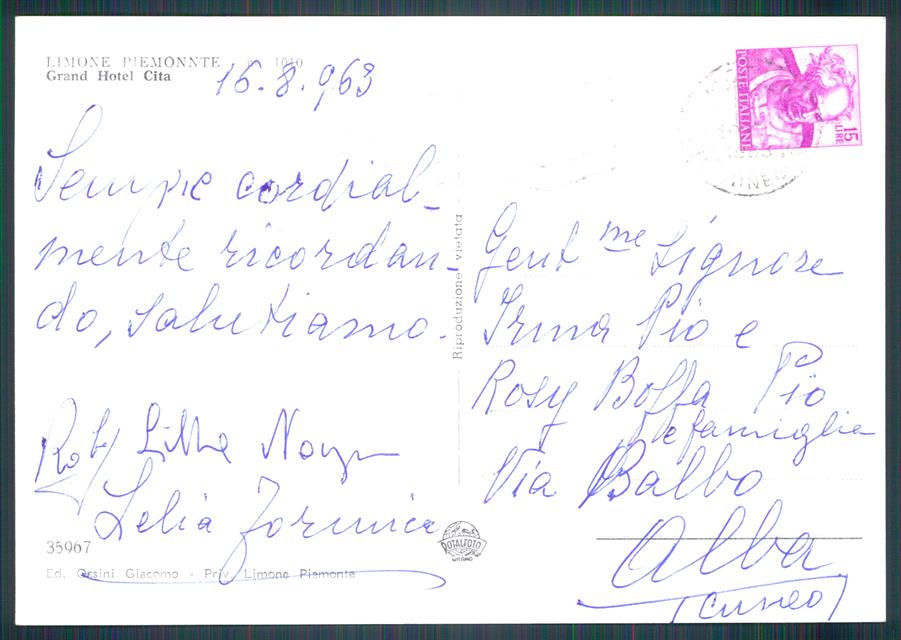 LIMONE PIEMONNTE
Grand Hotel Cita
16.8.963
Sempre cordial-
mente ricordan-
do, salutiamo.
Roby Lilla
Lelia Formica
35967
Ed. Orsini Giacomo - Priv. Limone Piemonte
Riproduzione vietata
ROTALFOTO
MILANO
POSTE ITALIANE
15
LIRE
Gent.me Signore
Irma Pio e
Rosy Boffa Pio
e famiglia
Via Balbo
Alba
(Cuneo)